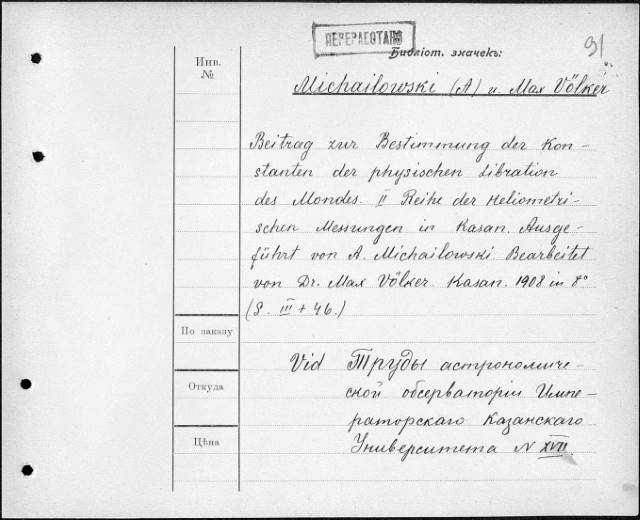 ПЕРЕРАБОТАНО
Библіот. значекъ:
91
Инв.
№
Michailowski (A) u. Max Völker
Beitrag zur Bestimmung der Kon-
stanten der physischen Libration
des Mondes. II Reihe der Heliometri-
schen Messungen in Kasan. Ausge-
führt von A. Michailowski. Bearbeitet
von Dr. Max Völker. Kasan. 1908 in 8°
(S. III + 46.)
По заказу
Vid Труды астрономиче-
Откуда
ской обсерваторіи Импе-
раторскаго Казанскаго
Цѣна
Университета N XVII